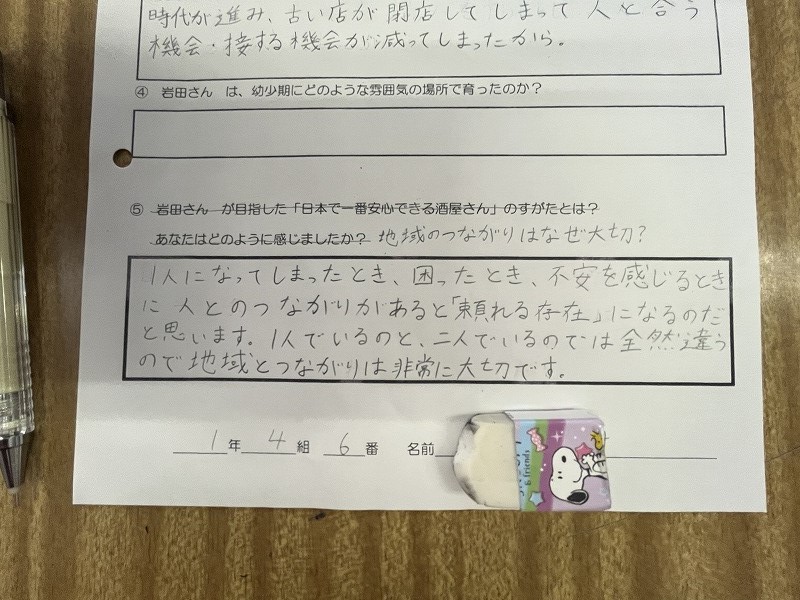 時代が進み、古い店が閉店してしまって人と合う
機会・接する機会が減ってしまったから。
④ 岩田さん は、幼少期にどのような雰囲気の場所で育ったのか？
⑤ 岩田さん が目指した「日本で一番安心できる酒屋さん」のすがたとは？
あなたはどのように感じましたか？ 地域のつながりはなぜ大切？
1人になってしまったとき、困ったとき、不安を感じるとき
に人とのつながりがあると「頼れる存在」になるのだ
と思います。1人でいるのと、二人でいるのでは全然違う
ので地域とつながりは非常に大切です。
1年 4組 6番 名前
& friends